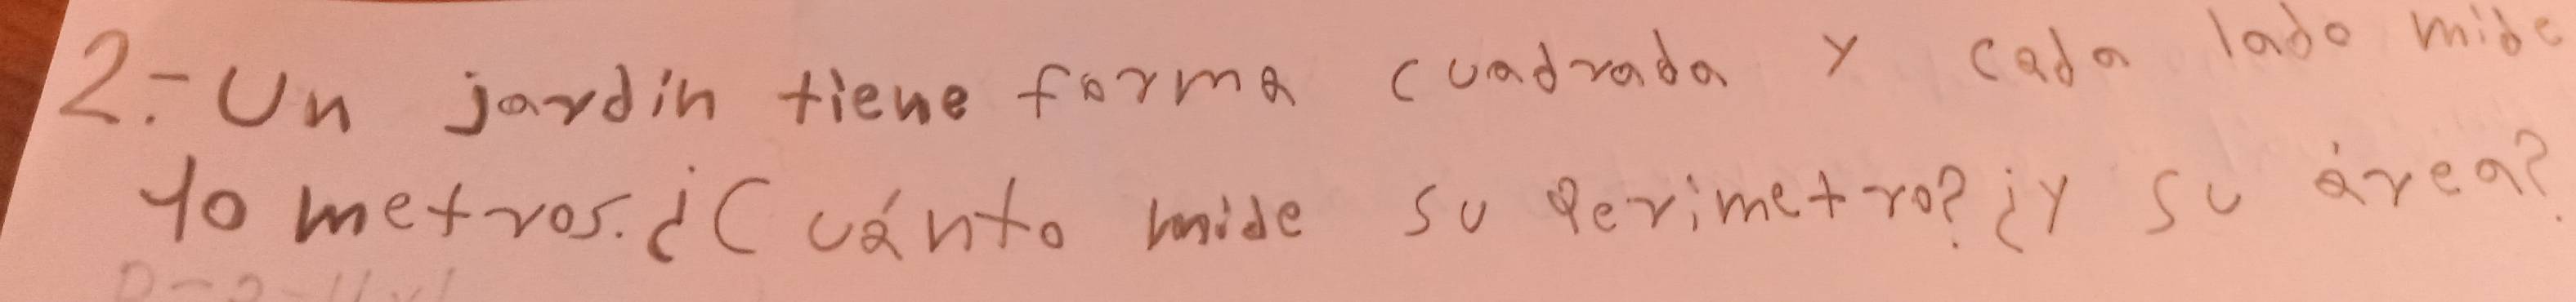 2.- Un jardin tiene forma cuadrada y cada lado mide
10 metros. ¿Cuánto mide su perimetro? ¿y su área?